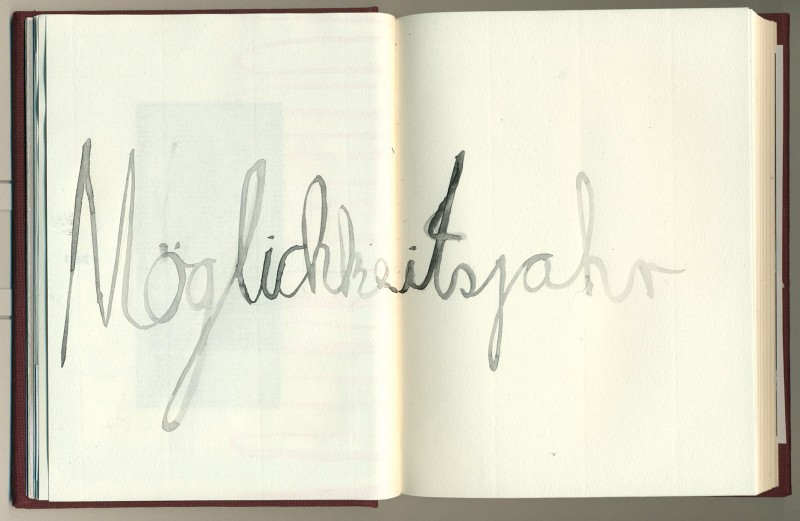 Möglichkeitsjahr